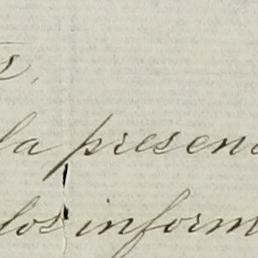 s,
la presen
los inform